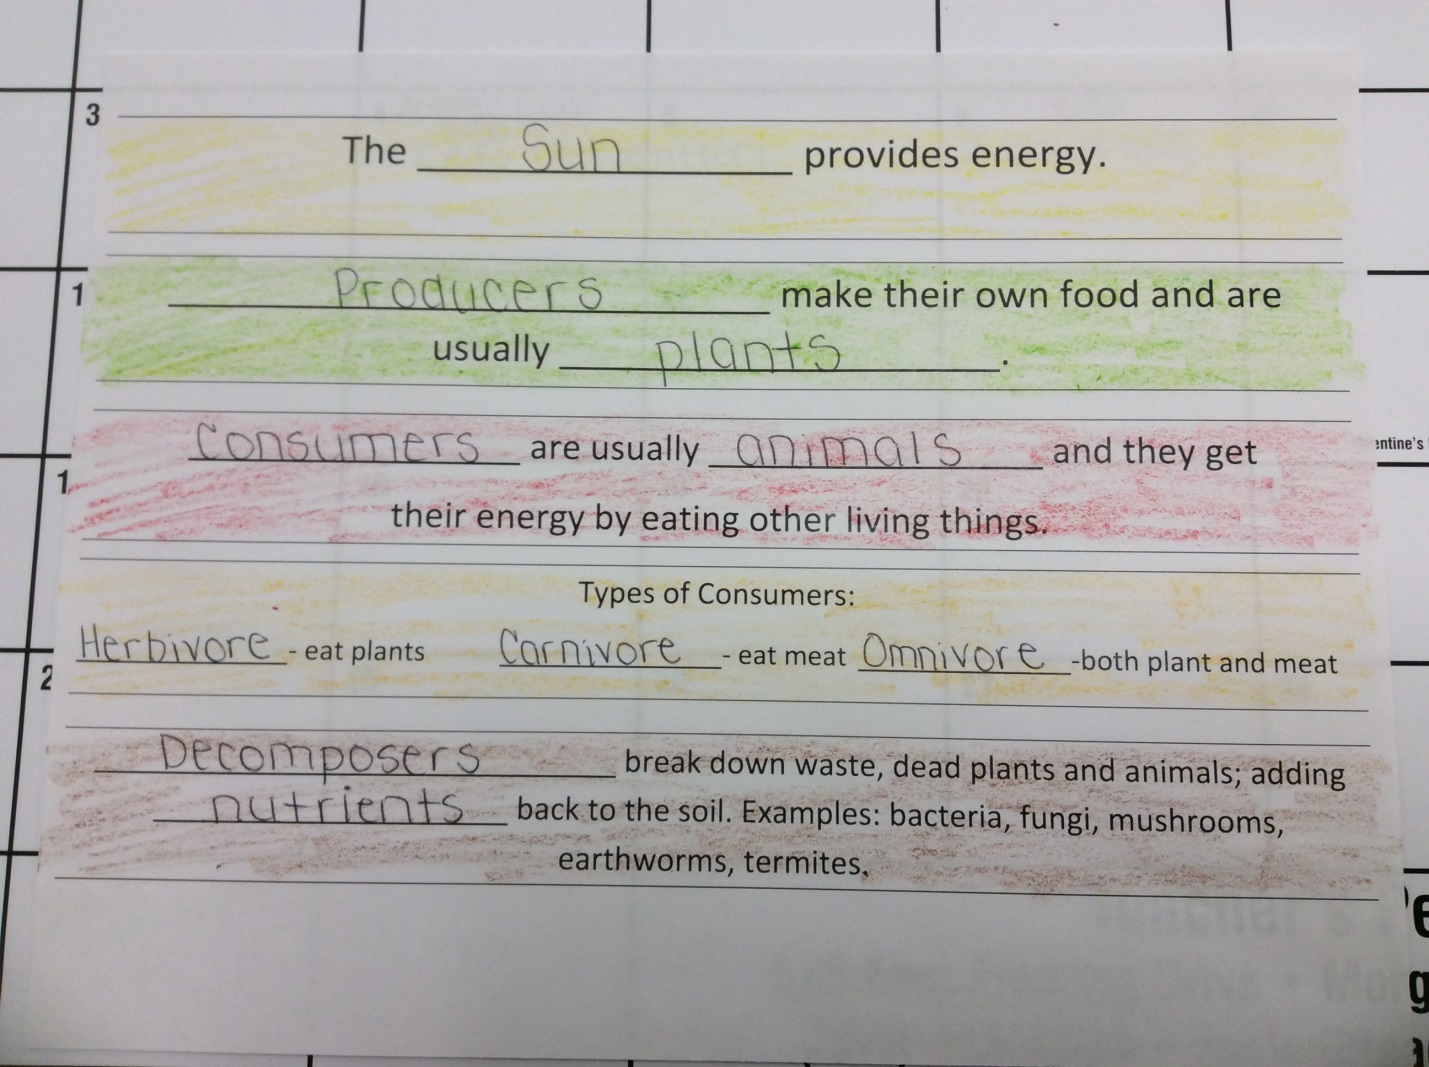 3
The Sun provides energy.
1
Producers make their own food and are
usually plants.
Consumers are usually animals and they get
entine's
1
their energy by eating other living things.
Types of Consumers:
Herbivore - eat plants Carnivore - eat meat Omnivore -both plant and meat
2
Decomposers break down waste, dead plants and animals; adding
nutrients back to the soil. Examples: bacteria, fungi, mushrooms,
earthworms, termites.